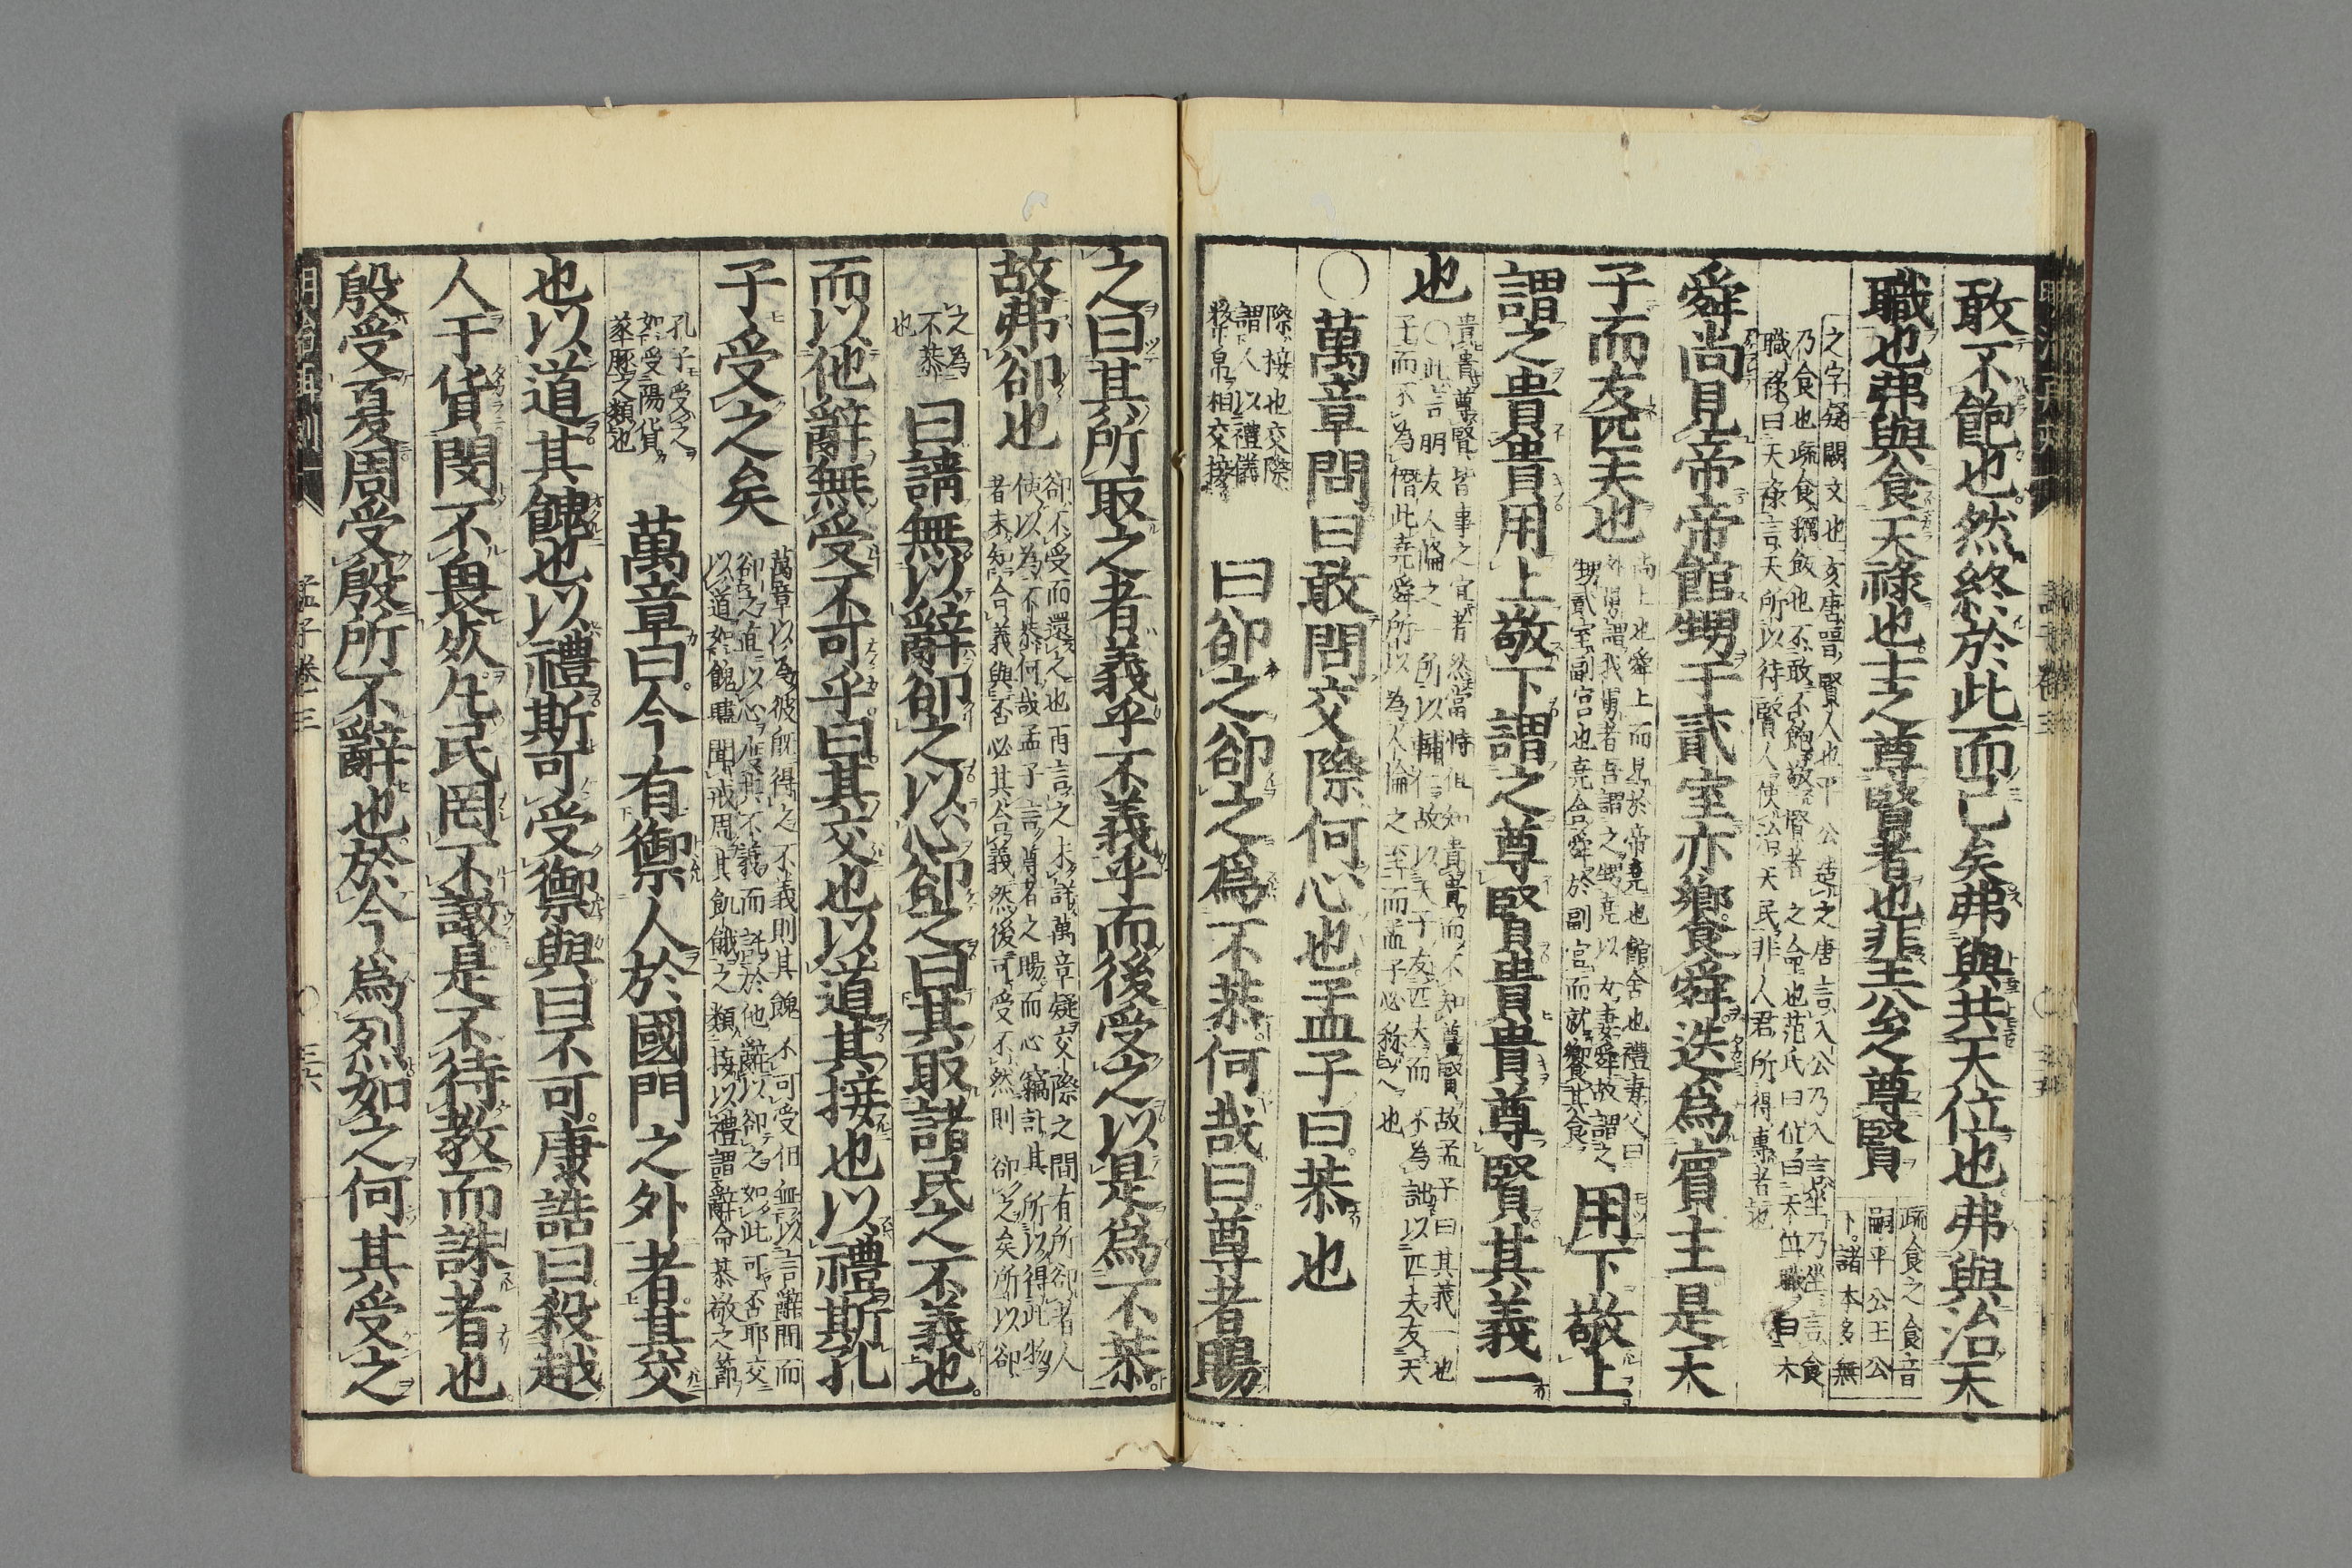 敢不飽也然終於此而已矣弗與共天位也弗與治天
職也弗與食天祿也士之尊賢者也非王公之尊賢
疏食之食音
嗣平公王公
下諸本多無
之字疑闕文也亥唐晉賢人也平公造之唐言入公乃入言坐乃坐言食
乃食也疏食糲飯也不敢不飽敬賢者之命也范氏曰位曰天位職曰天
職祿曰天祿言天所以待賢人使治天民非人君所得專者也
舜尚見帝帝館甥于貳室亦饗舜迭爲賓主是天
子而友匹夫也
尚上也舜上而見於帝堯也館舍也禮妻父曰
外舅謂我舅者吾謂之甥堯以女妻舜故謂之
甥貳室副宮也堯舍舜於副宮而就饗其食
用下敬上
謂之貴貴用上敬下謂之尊賢貴貴尊賢其義一
也
貴貴尊賢皆事之宜者然當時但知貴貴而不知尊賢故孟子曰其義一也
○此言朋友人倫之一所以輔仁故以天子友匹夫而不為詘以匹夫友天
子而不為僭此堯舜所以為人倫之至而孟子必稱之也
○萬章問曰敢問交際何心也孟子曰恭也
際接也交際
謂人以禮儀
幣帛相交接
曰卻之卻之爲不恭何哉曰尊者賜
之曰其所取之者義乎不義乎而後受之以是爲不恭
故弗卻也
卻不受而還之也再言之未詳萬章疑交際之間有所卻者人
便以為不恭何哉孟子言尊者之賜而心竊計其所以得此物
者未知合義與否必其合義然後可受不然則卻之矣所以卻
之為
不恭
也
曰請無以辭卻之以心卻之曰其取諸民之不義也
而以他辭無受不可乎曰其交也以道其接也以禮斯孔
子受之矣
萬章以為彼既得之不義則其餽不可受但無以言辭間而
卻之直以心度其不義而託於他辭以卻之如此可否耶交
以道如餽贐聞戒周其飢餓之類接以禮謂辭命恭敬之節
孔子受之
如受陽貨
蒸豚之類也
萬章曰今有禦人於國門之外者其交
也以道其餽也以禮斯可受禦與曰不可康誥曰殺越
人于貨閔不畏死凡民罔不譈是不待教而誅者也
殷受夏周受殷所不辭也於今爲烈如之何其受之
孟子卷三
三六